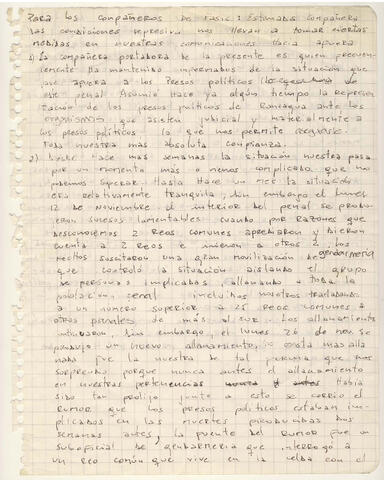 Para los compañeros de Fasic: Estimados compañeros
las condiciones represivas nos llevan a tomar ciertas
medidas en nuestras comunicaciones hacia afuera
1) La compañera portadora de la presente es quien
mente ha mantenido informados de la situación que
afuera a los Presos políticos
este penal Asumió hace ya algún tiempo la represen
tación de los presos políticos de Rancagua ante los
organismos que asisten judicial y materialmente a
los presos políticos. lo que nos permite
toda nuestra más absoluta confianza.
2) Desde hace más semanas la situación nuestra pasa
por un momento más o menos complicado que no
podemos superar. Hasta hace un mes la situación
era relativamente tranquila sin embargo el lunes
12 de noviembre al interior del penal se produ
jeron sucesos lamentables cuando por razones que
desconocemos 2 Reos comunes apuñalaron y dieron
cuenta a 2 Reos e hirieron a otros 2. Los
hechos suscitaron una gran movilización de gendarmería
que controló la situación aislando el grupo
de personas implicadas, allanando a toda la
población penal incluidos nosotros trasladando
a un número superior a 25 reos comunes a
otros penales de más al sur. Los allanamientos
continuaron. Sin embargo, el lunes 26 de nov. se
produjo un nuevo allanamiento, esta más alla
nada fue la nuestra de tal forma que nos
sorprendió porque nunca antes el allanamiento
en nuestras pertenencias había
sido tan prolijo junto a esto se corrió el
Rumor que los presos políticos estaban im
plicados en las muertes producidas dos
semanas antes, la fuente del Rumor fue un
suboficial de gendarmería que interrogó a
un reo común que vive en la celda con el